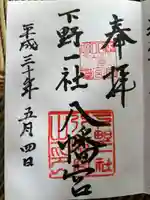 奉拝
下野一社
八幡宮
平成三十年五月四日